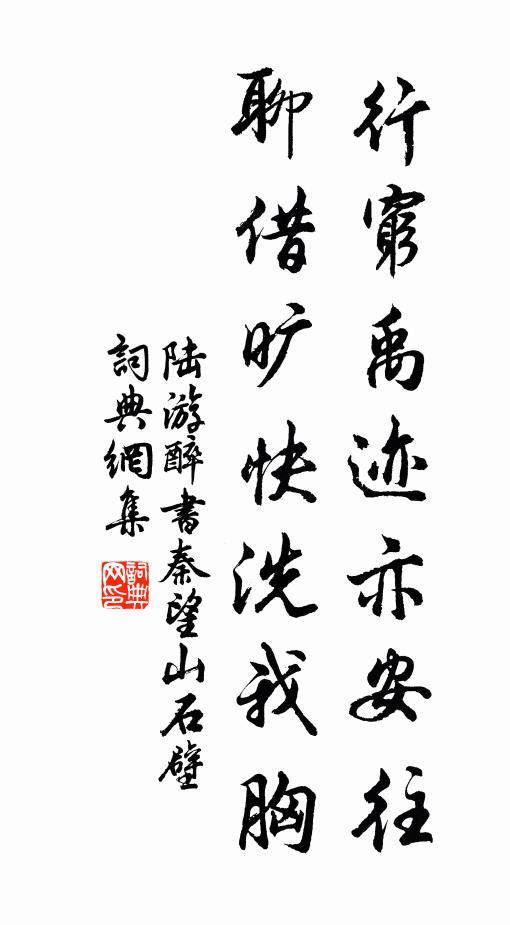 行窮禹迹亦安往
聊借旷快洗我胸
陆游醉書秦望山石壁
詞典網集
詞典网印